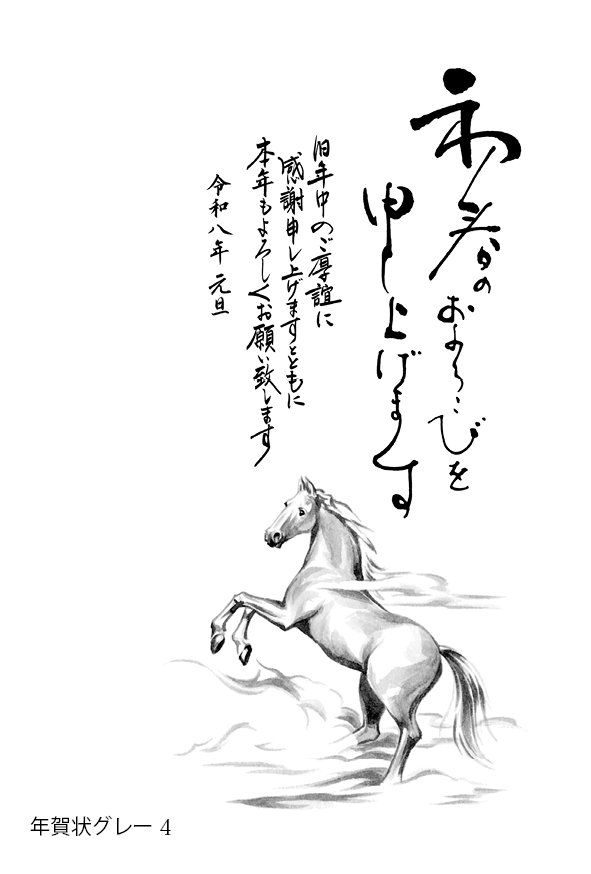 初春のおよろこびを
申し上げます
旧年中のご厚誼に
感謝申し上げますとともに
本年もよろしくお願い致します
令和八年 元旦
年賀状グレー 4